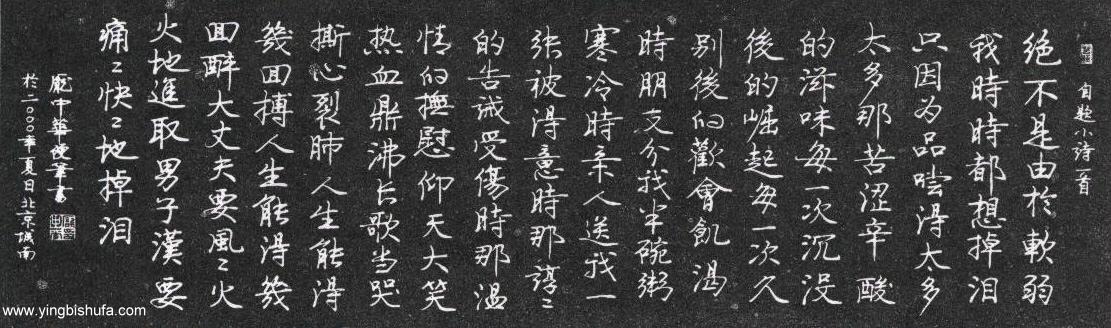 自题小诗一首
绝不是由於軟弱
我時時都想掉泪
只因为品嚐得太多
太多那苦涩辛酸
的滋味每一次沉没
後的崛起每一次久
别後的歡會飢渴
時朋友分我半碗粥
寒冷時亲人送我一
张被得意時那諄〻
的告诫受傷時那温
情的撫慰仰天大笑
热血鼎沸长歌当哭
撕心裂肺人生能得
幾回搏人生能得幾
回醉大丈夫要風〻火
火地進取男子漢要
痛〻快〻地掉泪
庞中華硬筆書
於二〇〇〇年夏日北京城南
www.yingbishufa.com